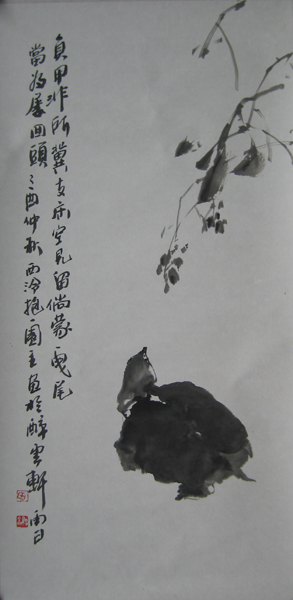 負甲非所冀支床空見留倘蒙一曳尾
當為屢回頭乙酉仲秋西泠抱一園主畫於醉雲軒南日